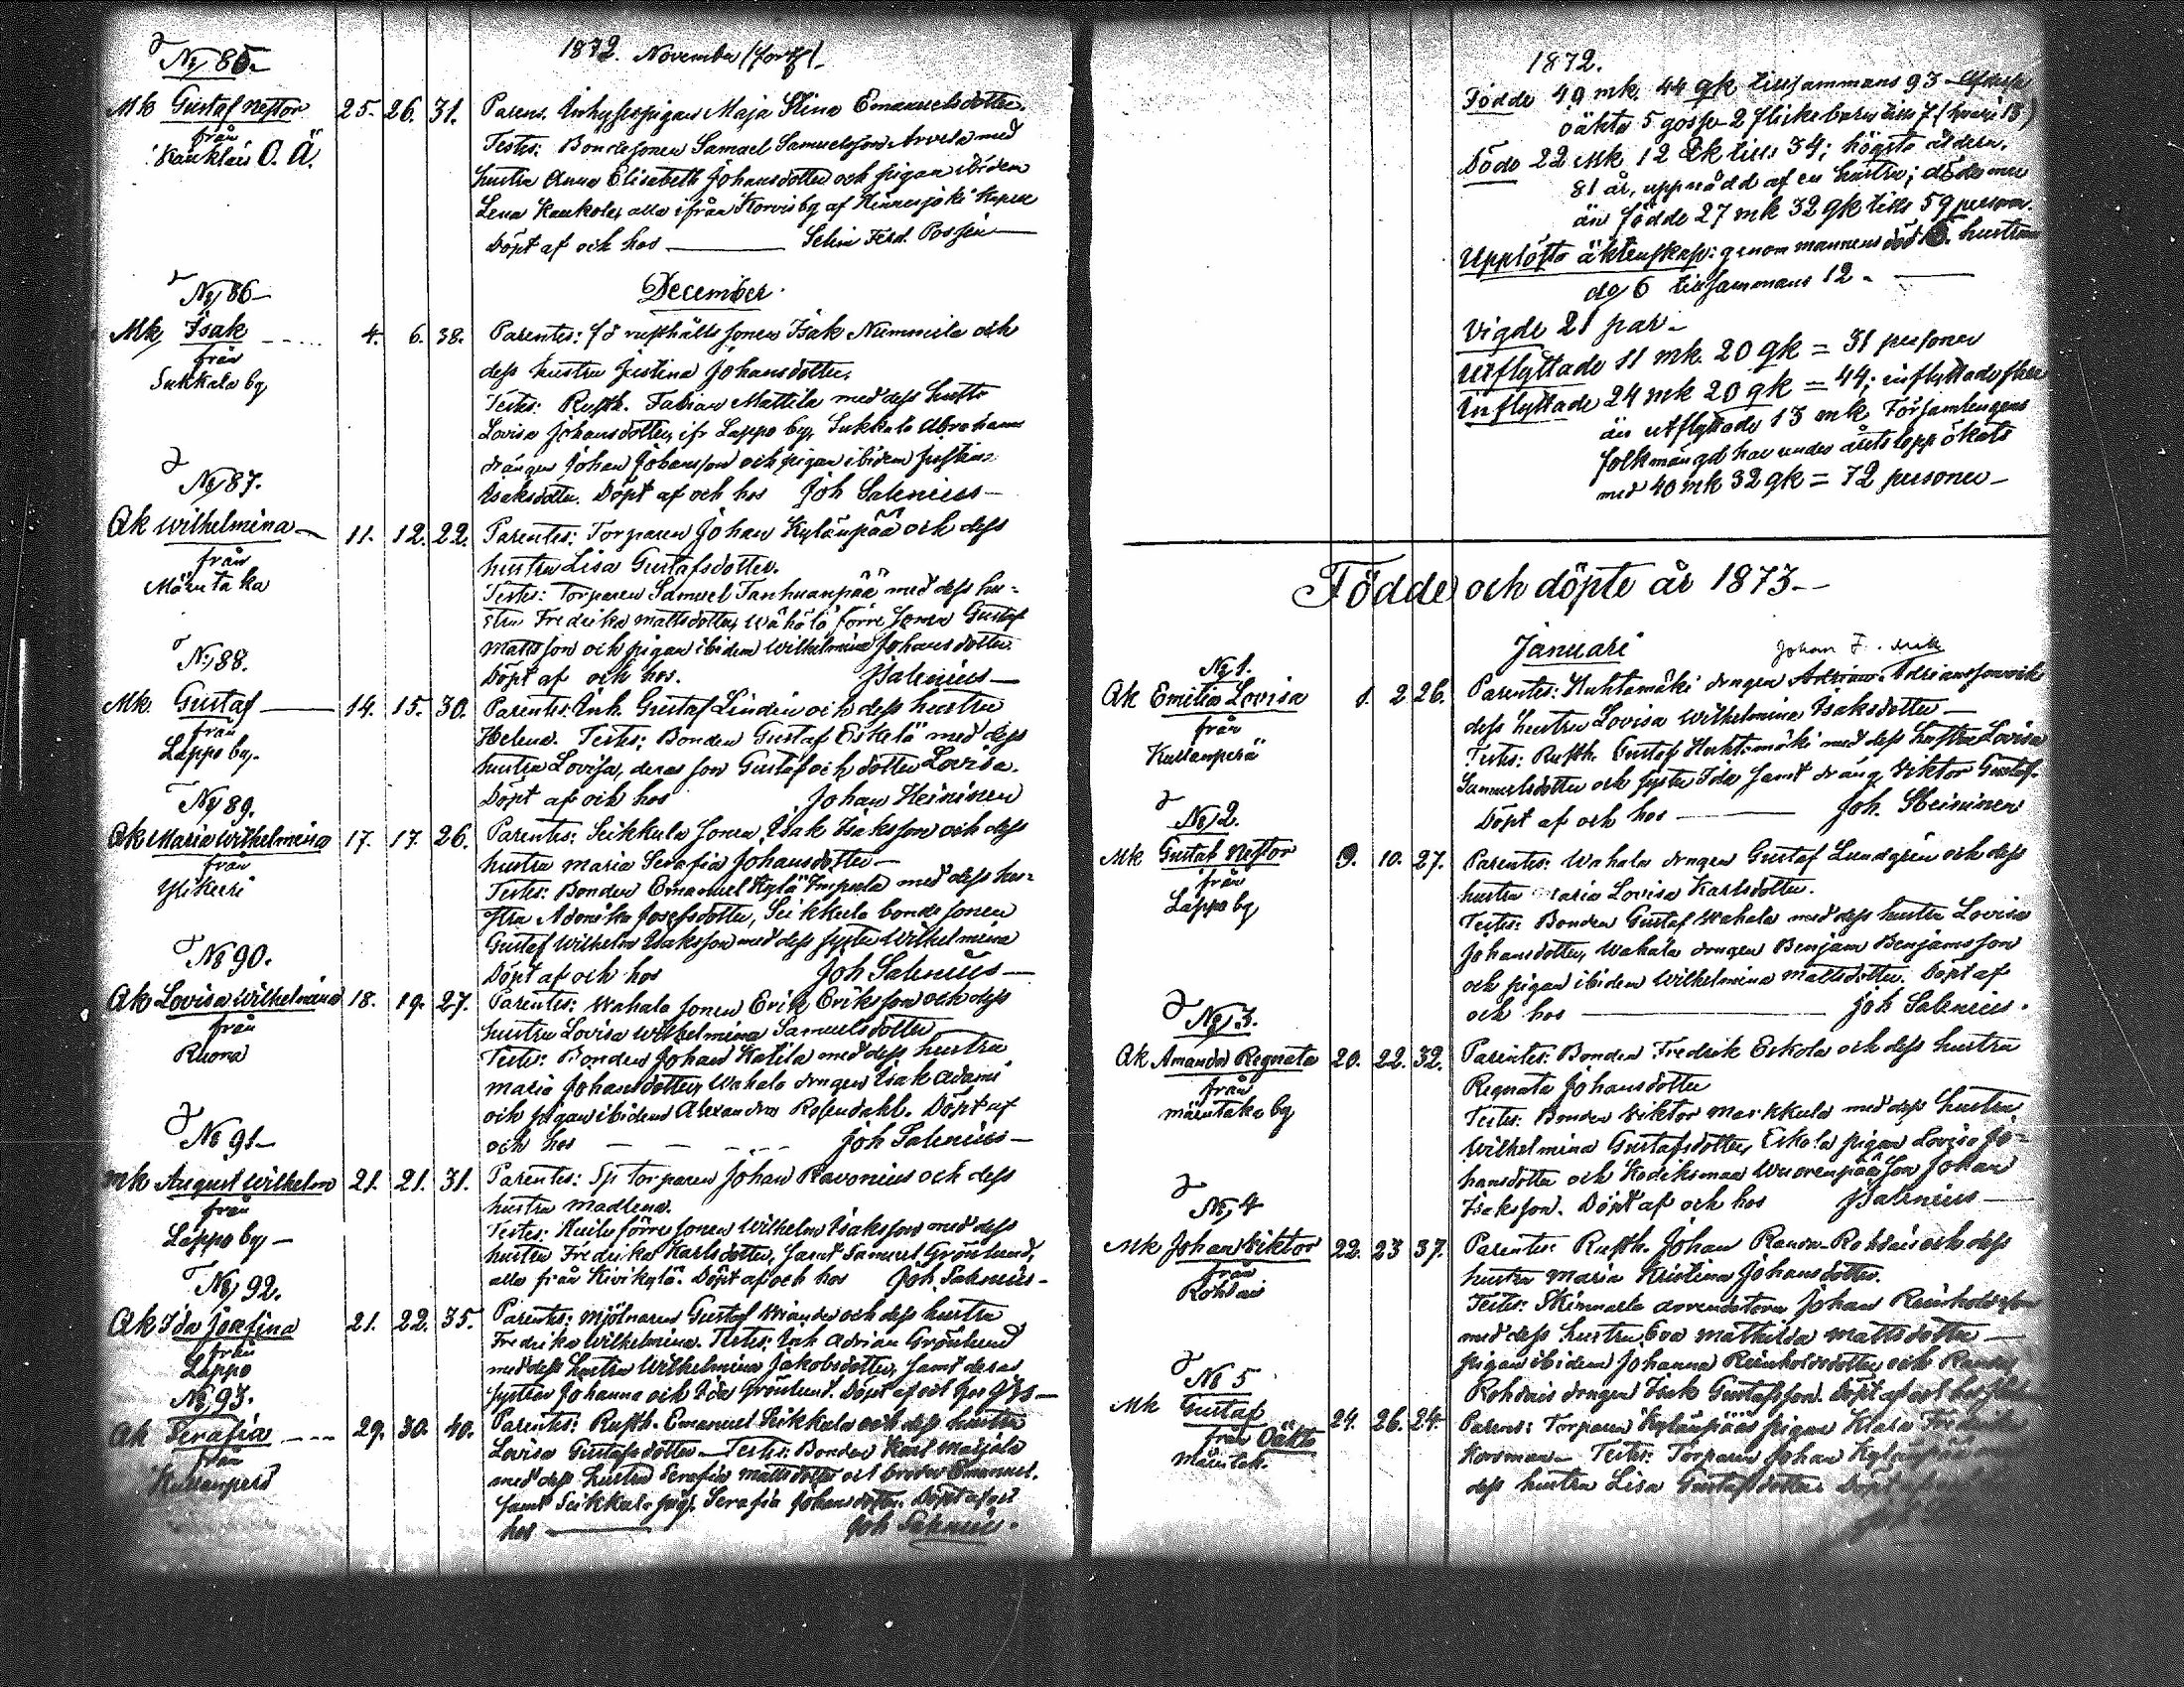 1872. November (forts).
No 85.
Mk Gustaf Nestor 25. 26. 31. Parens. Inhysespigan Maja Stina Emanuelsdotter.
från
Kauklais O. Ä.
Testes: Bondesonen Samuel Samuelsson Arvela med
hustru Anna Elisabeth Johansdotter och pigan ibidem
Lena alla ifrån by af
Döpt af och hos Selim Ferd.
December
No 86
Mk Isak 4. 6. 38. Parentes: fd rusthålls sonen Isak Nummila och
från
Sukkala by
dess hustru Justina Johansdotter.
Testes: Rusth. Fabian Mattila med dess hustru
Lovisa Johansdotter, ifr Lappo by, Sukkala Abrahams
drängen Johan Johansson och pigan ibidem
Isaksdotter. Döpt af och hos Joh Salenius
No 87.
Qk Wilhelmina 11. 12. 22. Parentes: Torparen Johan Kylänpää och dess
från
Mäentaka
hustru Lisa Gustafsdotter.
Testes: Torparen Samuel Tanhuanpää med dess hu=
stru Fredrika Mattsdotter, Wähälä förre sonen Gustaf
Mattsson och pigan ibidem Wilhelmina Johansdotter.
Döpt af och hos. JSalenius
No 88.
Mk. Gustaf 14. 15. 30. Parentes: Inh. Gustaf Lindén och dess hustru
från
Lappo by.
Helena. Testes: Bonden Gustaf Eskelä med dess
hustru Lovisa, deras son Gustaf och dotter Lovisa.
Döpt af och hos Johan Heininen
No 89.
Qk Maria Wilhelmina 17. 17. 26. Parentes: Seikkula sonen Isak Isaksson och dess
från
Ylikeeri
hustru Maria Serafia Johansdotter
Testes: Bonden Emanuel Kylä Impola med dess hu=
stru Josefsdotter, Seikkula bonde sonen
Gustaf Wilhelm Isaksson med dess syster Wilhelmina
Döpt af och hos Joh Salenius
No 90.
Qk Lovisa Wilhelmina 18. 19. 27. Parentes: Wahala sonen Erik Eriksson och dess
från
Ruona
hustru Lovisa Wilhelmina Samuelsdotter
Testes: Bonden Johan Katila med dess hustru
Maria Johansdotter, Wahala drngen Isak
och pigan ibidem Alexandra Rosendahl. Döpt af
och hos Joh Salenius
No 91
Mk August Wilhelm 21. 21. 31. Parentes: Sp torparen Johan Ravonius och dess
från
Lappo by
hustru Madlena.
Testes: förre sonen Wilhelm Isaksson med dess
hustru Fredrika Karlsdotter, samt Samuel Grönlund,
alla från Kivikylä. Döpt af och hos Joh. Salenius
No 92.
Qk Ida Josefina 21. 22. 35. Parentes: Mjölnaren Gustaf och dess hustru
från
Lappo
Fredrika Wilhelmina. Testes: Inh Adrian Grönlund
med dess hustru Wilhelmina Jakobsdotter, samt deras
systrar Johanna och Ida Grönlund. Döpt af och hos
No 93.
Qk Serafia 29. 30. 40. Parentes: Rusth. Emanuel Seikkula och dess hustru
från
Kullanperä
Lovisa Gustafsdotter Testes: Bonden Karl Marjala
med dess hustru Serafia Mattsdotter och broder Emanuel.
samt Seikkula pig. Serafia Johansdotter. Döpt af och
hos Joh Salenius.
1872.
Födde 49 mk. 44 qk tillsammans 93
oäkta 5 gosse 2 flickebarn tills 7
Döde 22 Mk 12 Qk tills 34; högsta åldern,
81 år, uppnådd af en hustru; döde mer
än födde 27 mk 32 qk tills 59 person.
Upplösta äktenskap: genom mannens död 6. hustruns
do 6 tillsammans 12.
Vigde 21 par
Utflyttade 11 mk. 20 qk = 31 personer
Inflyttade 24 mk 20 qk = 44; inflyttade fler
än utflyttade 13 mk. Församlingens
folkmängd har under årets lopp ökats
med 40 mk 32 qk = 72 personer
Födde och döpte år 1873.
Januari
No 1.
Johan F.
Qk Emilia Lovisa 1. 2 26. Parentes: Huhtamäki drngen Adrian Adriansson och
från
Kullanperä
dess hustru Lovisa Wilhelmina Isaksdotter
Testes: Rusth. Gustaf Huhtamäki med dess hustru Lovisa
Samuelsdotter och syster Ida samt dräng. Viktor Gustaf.
Döpt af och hos Joh. Heininen
No 2.
Mk Gustaf Nestor 9. 10. 27. Parentes: Wahala drngen Gustaf Lundgrén och dess
från
Lappo by
hustru Maria Lovisa Karlsdotter.
Testes: Bonden Gustaf Wahala med dess hustru Lovisa
Johansdotter, Wahala drngen Benjam Benjamsson
och pigan ibidem Wilhelmina Mattsdotter. Döpt af
och hos Joh Salenius.
No 3.
Qk Amanda Regnata 20. 22. 32. Parentes: Bonden Fredrik Eskola och dess hustru
från
Mäentaka by
Regnata Johansdotter
Testes: Bonden Viktor Markkula med dess hustru
Wilhelmina Gustafsdotter, Eskola pigan Lovisa Jo=
hansdotter och Kodiksmaa Wuorenpää son Johan
Isaksson. Döpt af och hos JSalenius
No 4
Mk Johan Viktor 22. 23 37. Parentes: Rusth. Johan Rohdais och dess
från
Rohdais
hustru Maria Kristina Johansdotter.
Testes: Skinnarla arrendatorn Johan Reinholdsson
med dess hustru Eva Mathilda Mattsdotter
pigan ibidem Johanna Reinholdsdotter och
Rohdais drngen Isak Gustafsson. Döpt af och hos
No 5
Mk Gustaf 24. 26. 24. Parens: Torparen Kylänpääs pigan Klara Fredrika
från Oäkta
Mäentak.
Korsman Testes: Torparen Johan Kylänpää
dess hustru Lisa Gustafsdotter. Döpt